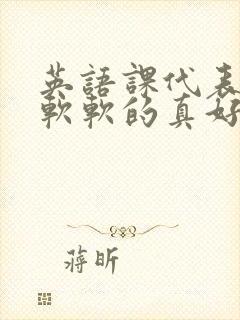 英語課代表
軟軟的真好
蔣昕